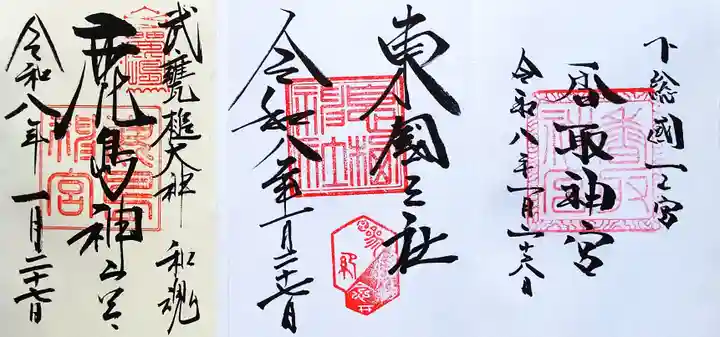 武甕槌大神 和魂
鹿島神宮
令和八年 一月二十七日
鹿島神宮
東國三社
令和八年一月二十七日
息栖神社
下総國一之宮
香取神宮
令和八年一月二十八日
香取神宮